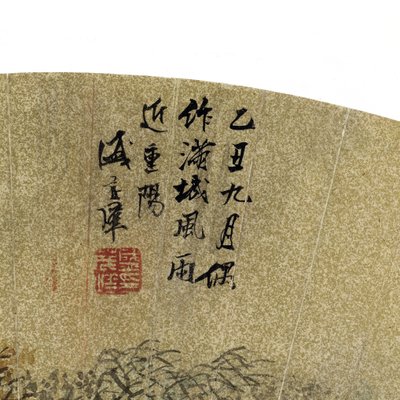 乙丑九月偶
作滿城風雨
近重陽
盛茂燁